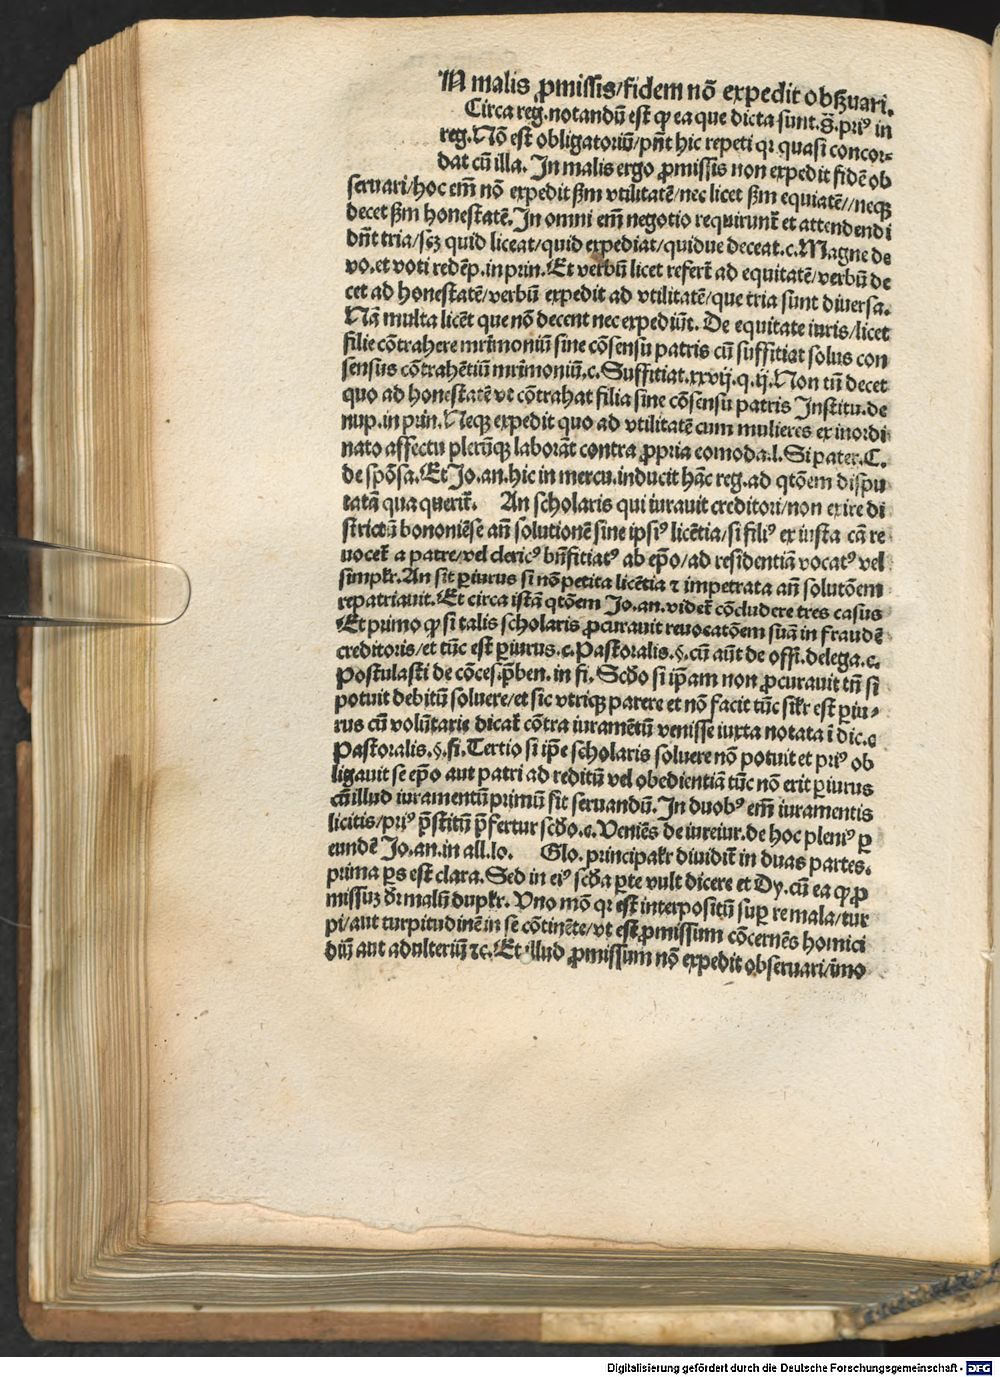 N malis ꝓmissis/fidem nō expedit obẜuari.
Circa reg. notandū est ꝙ ea que dicta sunt.s̄.priꝰ in
reg. Nō est obligatoriū/pn̄t hic repeti qꝛ quasi concor⸗
dat cū illa. In malis ergo ꝓmissis non expedit fidē ob
seruari/hoc em̄ nō expedit ẜm vtilitatē/nec licet ẜm equiatē//neqꝫ
decet ẜm honestatē. In omni em̄ negotio requirunt̄ et attendendi
dn̄t tria/scꝫ quid liceat/quid expediat/quidue deceat.c. Magne de
vo.et voti redēp.in prin. Et verbū licet refert̄ ad equitatē/verbū de
cet ad honestatē/verbū expedit ad vtilitatē/que tria sunt diuersa.
Nā multa licēt que nō decent nec expediūt. De equitate iuris/licet
filie cōtrahere mr̄imoniū sine cōsensu patris cū suffitiat solus con
sensus cōtrahētiū mr̄imoniū.c. Suffitiat.xxvij.q.ij. Non tn̄ decet
quo ad honestatē vt cōtrahat filia sine cōsensu patris Institu.de
nup.in prin. Neqꝫ expedit quo ad vtilitatē cum mulieres ex inordi
nato affectu plerūqꝫ laborāt contra ꝓpria comoda.l. Si pater. C.
de spōsa. Et Jo.an.hic in mercu.inducit hāc reg.ad qtōem dispu
tatā qua querit̄. An scholaris qui iurauit creditori/non exire di
strictū bononiēse an̄ solutionē sine ipsiꝰ licētia/si filiꝰ ex iusta cā re
uocet̄ a patre/vel clericꝰ bn̄fitiatꝰ ab ep̄o/ad residentiā vocatꝰ vel
simplr̄. An sit ꝑiurus si nō petita licētia ⁊ impetrata an̄ solutōem
repatriauit. Et circa istā qtōem Jo.an.videt̄ cōcludere tres casus
Et primo ꝙ si talis scholaris ꝓcurauit reuocatōem suā in fraudē
creditoris/et tūc est ꝑiurus.c. Pastoralis.§.cū aūt de offi.delega.c.
Postulasti de cōces.p̄ben.in fi. Scd̄o si ip̄am non ꝓcurauit tn̄ si
potuit debitū soluere/et sic vtriqꝫ parere et nō facit tūc sil̄r est ꝑiu⸗
rus cū volūtarie dicat̄ cōtra iuramētū venisse iuxta notata ī dic.c
Pastoralis.§.fi. Tertio si ip̄e scholaris soluere nō potuit et priꝰ ob
ligauit se ep̄o aut patri ad reditū vel obedientiā tūc nō erit ꝑiurus
cū illud iuramentū primū sit seruandū. In duobꝰ em̄ iuramentis
licitis/priꝰ p̄stitū p̄fertur scd̄o.c. Veniēs de iureiur.de hoc pleniꝰ ꝑ
eundē Jo.an.in all.lo. Glo. principalr̄ diuidit̄ in duas partes.
prima ꝑs est clara. Sed in eiꝰ scd̄a ꝑte vult dicere et Dy. cū ea ꝙ ꝓ
missuꝫ dr̄ malū duplr̄. Vno mō qꝛ est interpositū suꝑ re mala/tur
pi/aut turpitudinē in se cōtinēte/vt est ꝓmissum cōcernēs homici
diū aut adulteriū ⁊c. Et illud ꝓmissum nō expedit obseruari/īmo
Digitalisierung gefördert durch die Deutsche Forschungsgemeinschaft - DFG